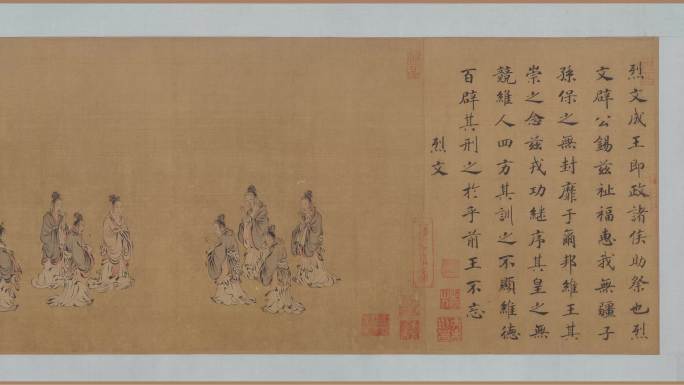 烈文成王即政諸侯助祭也烈
文辟公錫茲祉福惠我無疆子
孫保之無封靡于爾邦維王其
崇之念茲戎功繼序其皇之無
競維人四方其訓之不顯維德
百辟其刑之於乎前王不忘
烈文